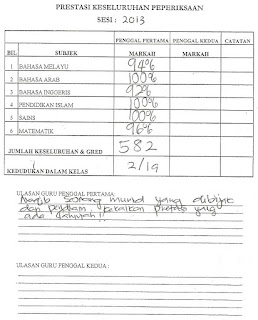 PRESTASI KESELURUHAN PEPERIKSAAN
SESI : 2013
PENGGAL PERTAMA PENGGAL KEDUA CATATAN
BIL SUBJEK MARKAH MARKAH
1 BAHASA MELAYU 94%
2 BAHASA ARAB 100%
3 BAHASA INGGERIS 92%
4 PENDIDIKAN ISLAM 100%
5 SAINS 100%
6 MATEMATIK 96%
JUMLAH KESELURUHAN & GRED 582
KEDUDUKAN DALAM KELAS 2/19
ULASAN GURU PENGGAL PERTAMA:
seorang murid yang
dan yang
ada
ULASAN GURU PENGGAL KEDUA :